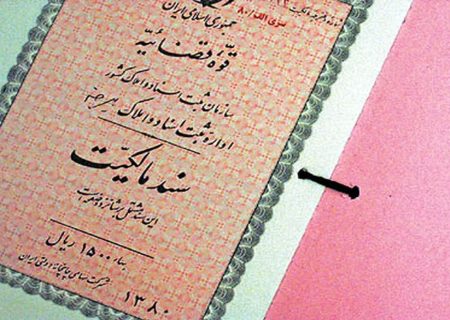 سری الف/۸۰
جمهوری اسلامی ایران
قوّه قضائیه
سازمان ثبت اسناد و املاک کشور
اداره ثبت اسناد و املاک
سند مالکیّت
این سند مشتمل بر شانزده صفحه است
بهاء ۱۵۰۰ ریال
شرکت سهامی چاپخانه دولتی ایران
۱۳۸۰